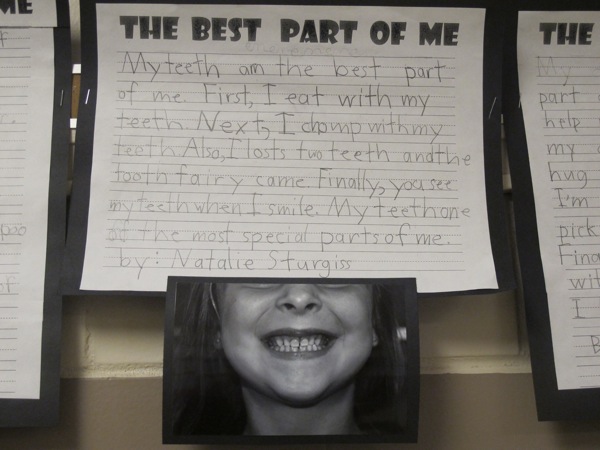 ME
THE BEST PART OF ME
My teeth am the best part
of me. First, I eat with my
teeth. Next, I chomp with my
teeth. Also, I losts two teeth and the
tooth fairy came. Finally, you see
my teeth when I smile. My teeth one
of the most special parts of me.
by: Natalie Sturgiss
THE
My
part
help
my
hug
I'm
pick
Fina
wit
I
B